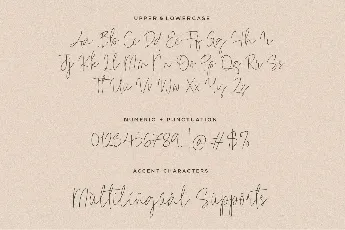 UPPER & LOWERCASE
Aa Bb Cc Dd Ee Ff Gg Hh Ii
Jj Kk Ll Mm Nn Oo Pp Qq Rr Ss
Tt Uu Vv Ww Xx Yy Zz
NUMERIC + PUNCTUATION
0123456789.!@#$%
ACCENT CHARACTERS
Multilingual Supports